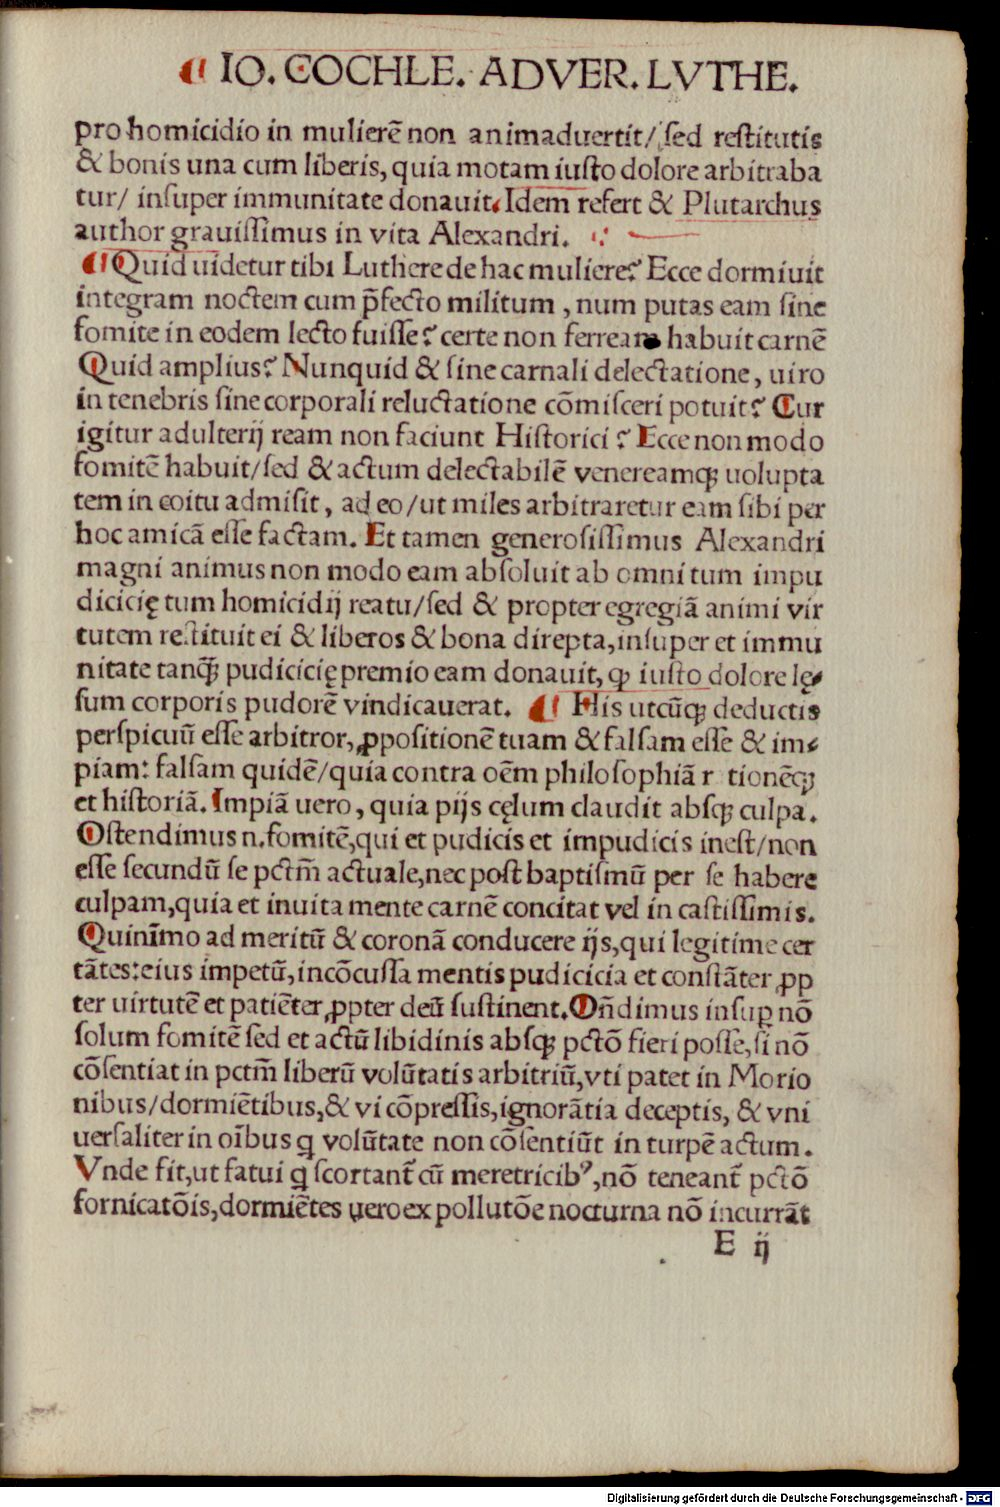 IO. COCHLE. ADVER. LVTHE.
pro homicidio in mulierē non animaduertit/ sed restitutis
& bonis una cum liberis, quia motam iusto dolore arbitraba
tur/ insuper immunitate donauit. Idem refert & Plutarchus
author grauissimus in vita Alexandri.
¶ Quid uidetur tibi Luthere de hac muliere? Ecce dormiuit
integram noctem cum p̄fecto militum, num putas eam sine
fomite in eodem lecto fuisse? certe non ferream habuit carnē
Quid amplius? Nunquid & sine carnali delectatione, uiro
in tenebris sine corporali reluctatione cōmisceri potuit? Cur
igitur adulterij ream non faciunt Historici? Ecce non modo
fomitē habuit/sed & actum delectabilē venereamq; uolupta
tem in coitu admisit, ad eo/ut miles arbitraretur eam sibi per
hoc amicā esse factam. Et tamen generosissimus Alexandri
magni animus non modo eam absoluit ab omni tum impu
dicicię tum homicidij reatu/sed & propter egregiā animi vir
tutem restituit ei & liberos & bona direpta, insuper et immu
nitate tanq̄; pudicicię premio eam donauit, ꝙ iusto dolore lę
sum corporis pudorē vindicauerat. ¶ His utcūq; deductis
perspicuū esse arbitror, ꝓpositionē tuam & falsam esse & im⸗
piam: falsam quidē/quia contra oēm philosophiā r tionēq;
et historiā. Impiā uero, quia pijs cęlum claudit absq; culpa.
Ostendimus n. fomitē, qui et pudicis et impudicis inest/non
esse secundū se pctm̄ actuale, nec post baptismū per se habere
culpam, quia et inuita mente carnē concitat vel in castissimis.
Quinīmo ad meritū & coronā conducere ijs, qui legitime cer
tātes: eius impetū, incōcussa mentis pudicicia et constāter ꝓp
ter uirtutē et patiēter ꝓpter deū sustinent. Oñdimus insuꝑ nō
solum fomitē sed et actū libidinis absq; pctō fieri posse, si nō
cōsentiat in pctm̄ liberū volūtatis arbitriū, vti patet in Morio
nibus/dormiētibus, & vi cōpressis, ignorātia deceptis, & vni
uersaliter in oībus q volūtate non cōsentiūt in turpē actum.
Vnde fit, ut fatui q scortant̄ cū meretricibꝰ, nō teneant̄ pctō
fornicatōis, dormiētes uero ex pollutōe nocturna nō incurrāt
E ij
Digitalisierung gefördert durch die Deutsche Forschungsgemeinschaft - DFG